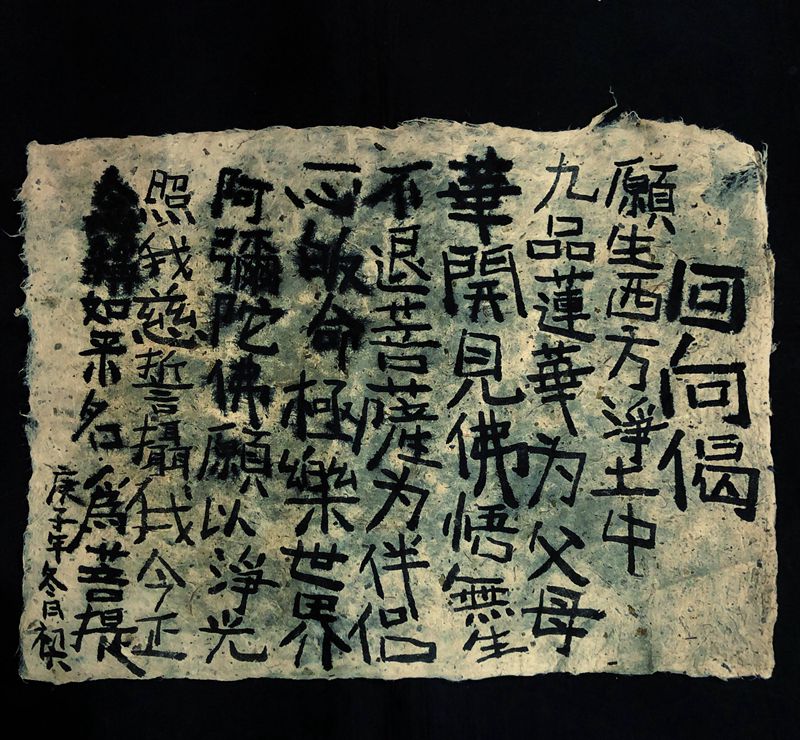 回向偈
願生西方淨土中
九品蓮華为父母
華開見佛悟無生
不退菩薩为伴侣
一心皈命極樂世界
阿彌陀佛願以淨光
照我慈誓攝我今正
念稱如来名為菩提
庚子年冬日